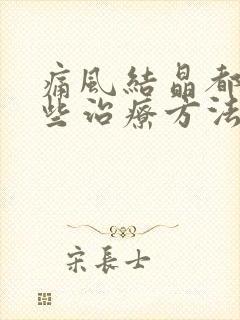 痛風結晶都
些治療方法
宋長士